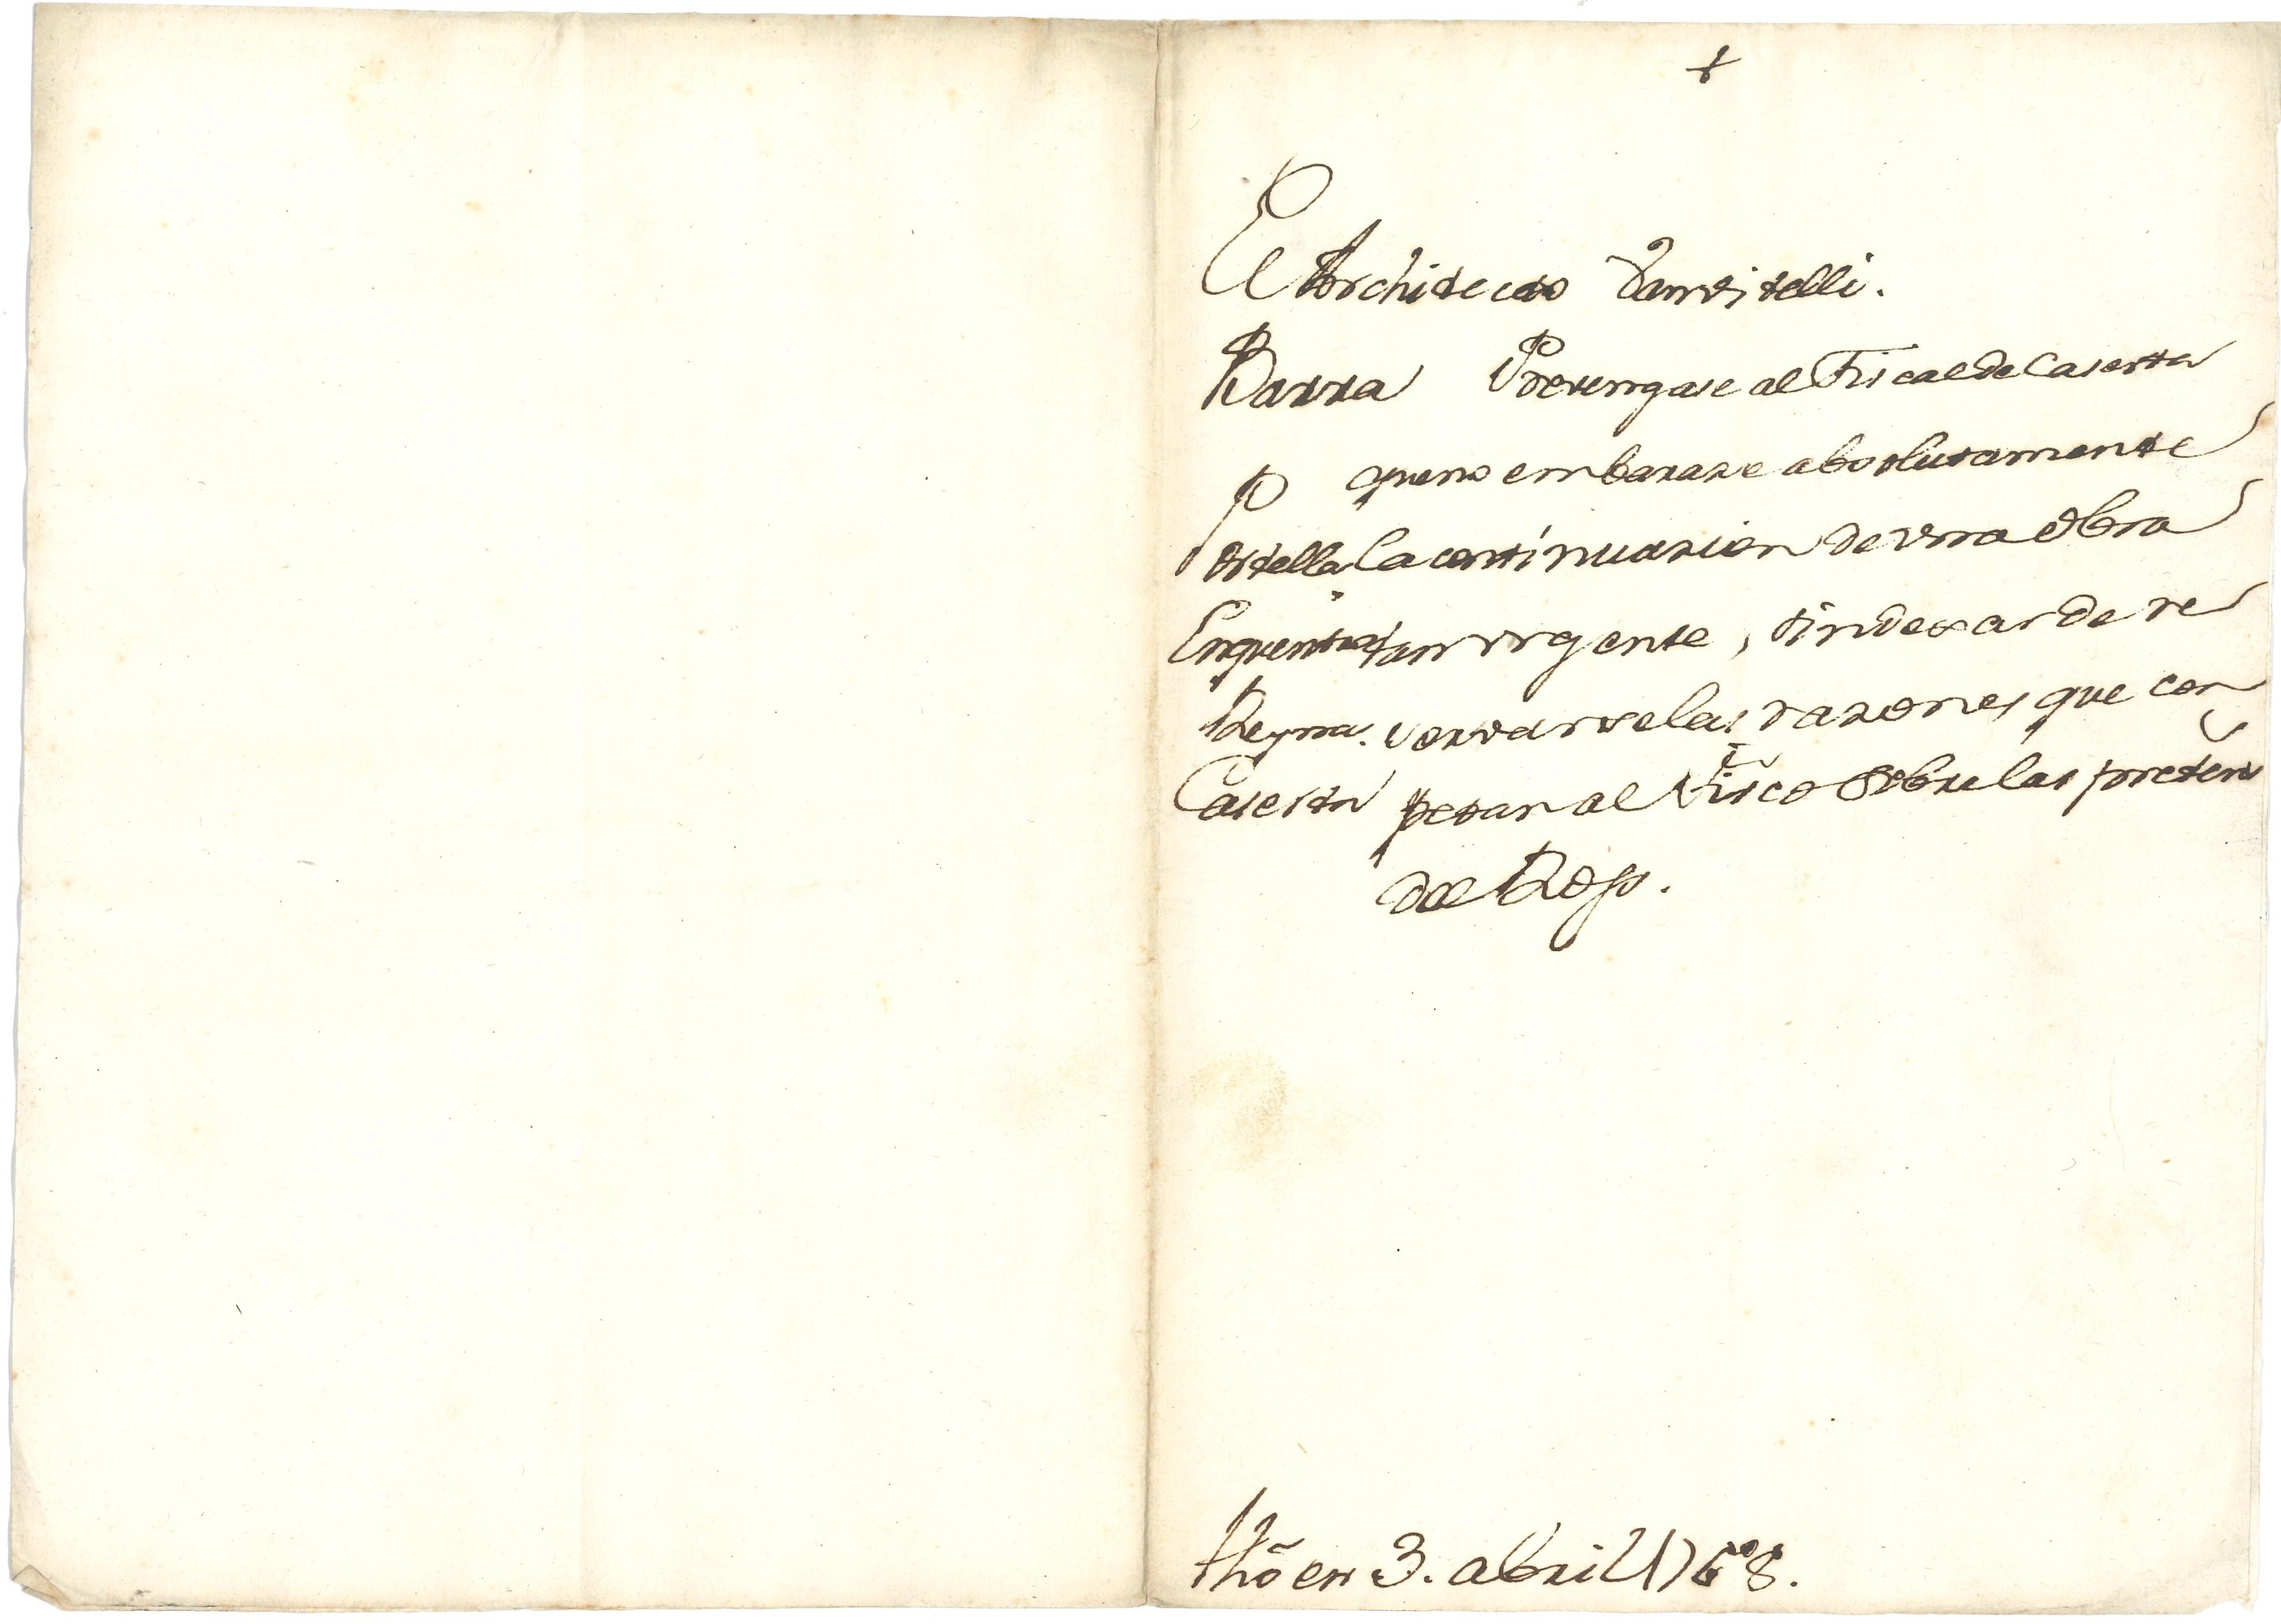 +
El Architecto Vanvitelli.
Barra Prevengase al Fiscal de Caserta
P queno embaraze absolutamente
Ostella la continuazion de una obra
tan urgente, sin dexar de re
Reyna. servarse las razones que con
Caserta petan al Fisco sobre las preten
del Rop.
Hõ en 3. abril 1768.